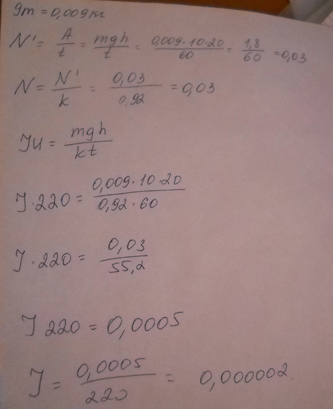 9m = 0,009кг
N' = A/t = mgh/t = 0,009·10·20/60 = 1,8/60 = 0,03
N = N'/k = 0,03/0,92 = 0,03
JU = mgh/kt
J·220 = 0,009·10·20/0,92·60
J·220 = 0,03/55,2
J 220 = 0,0005
J = 0,0005/220 = 0,000002.